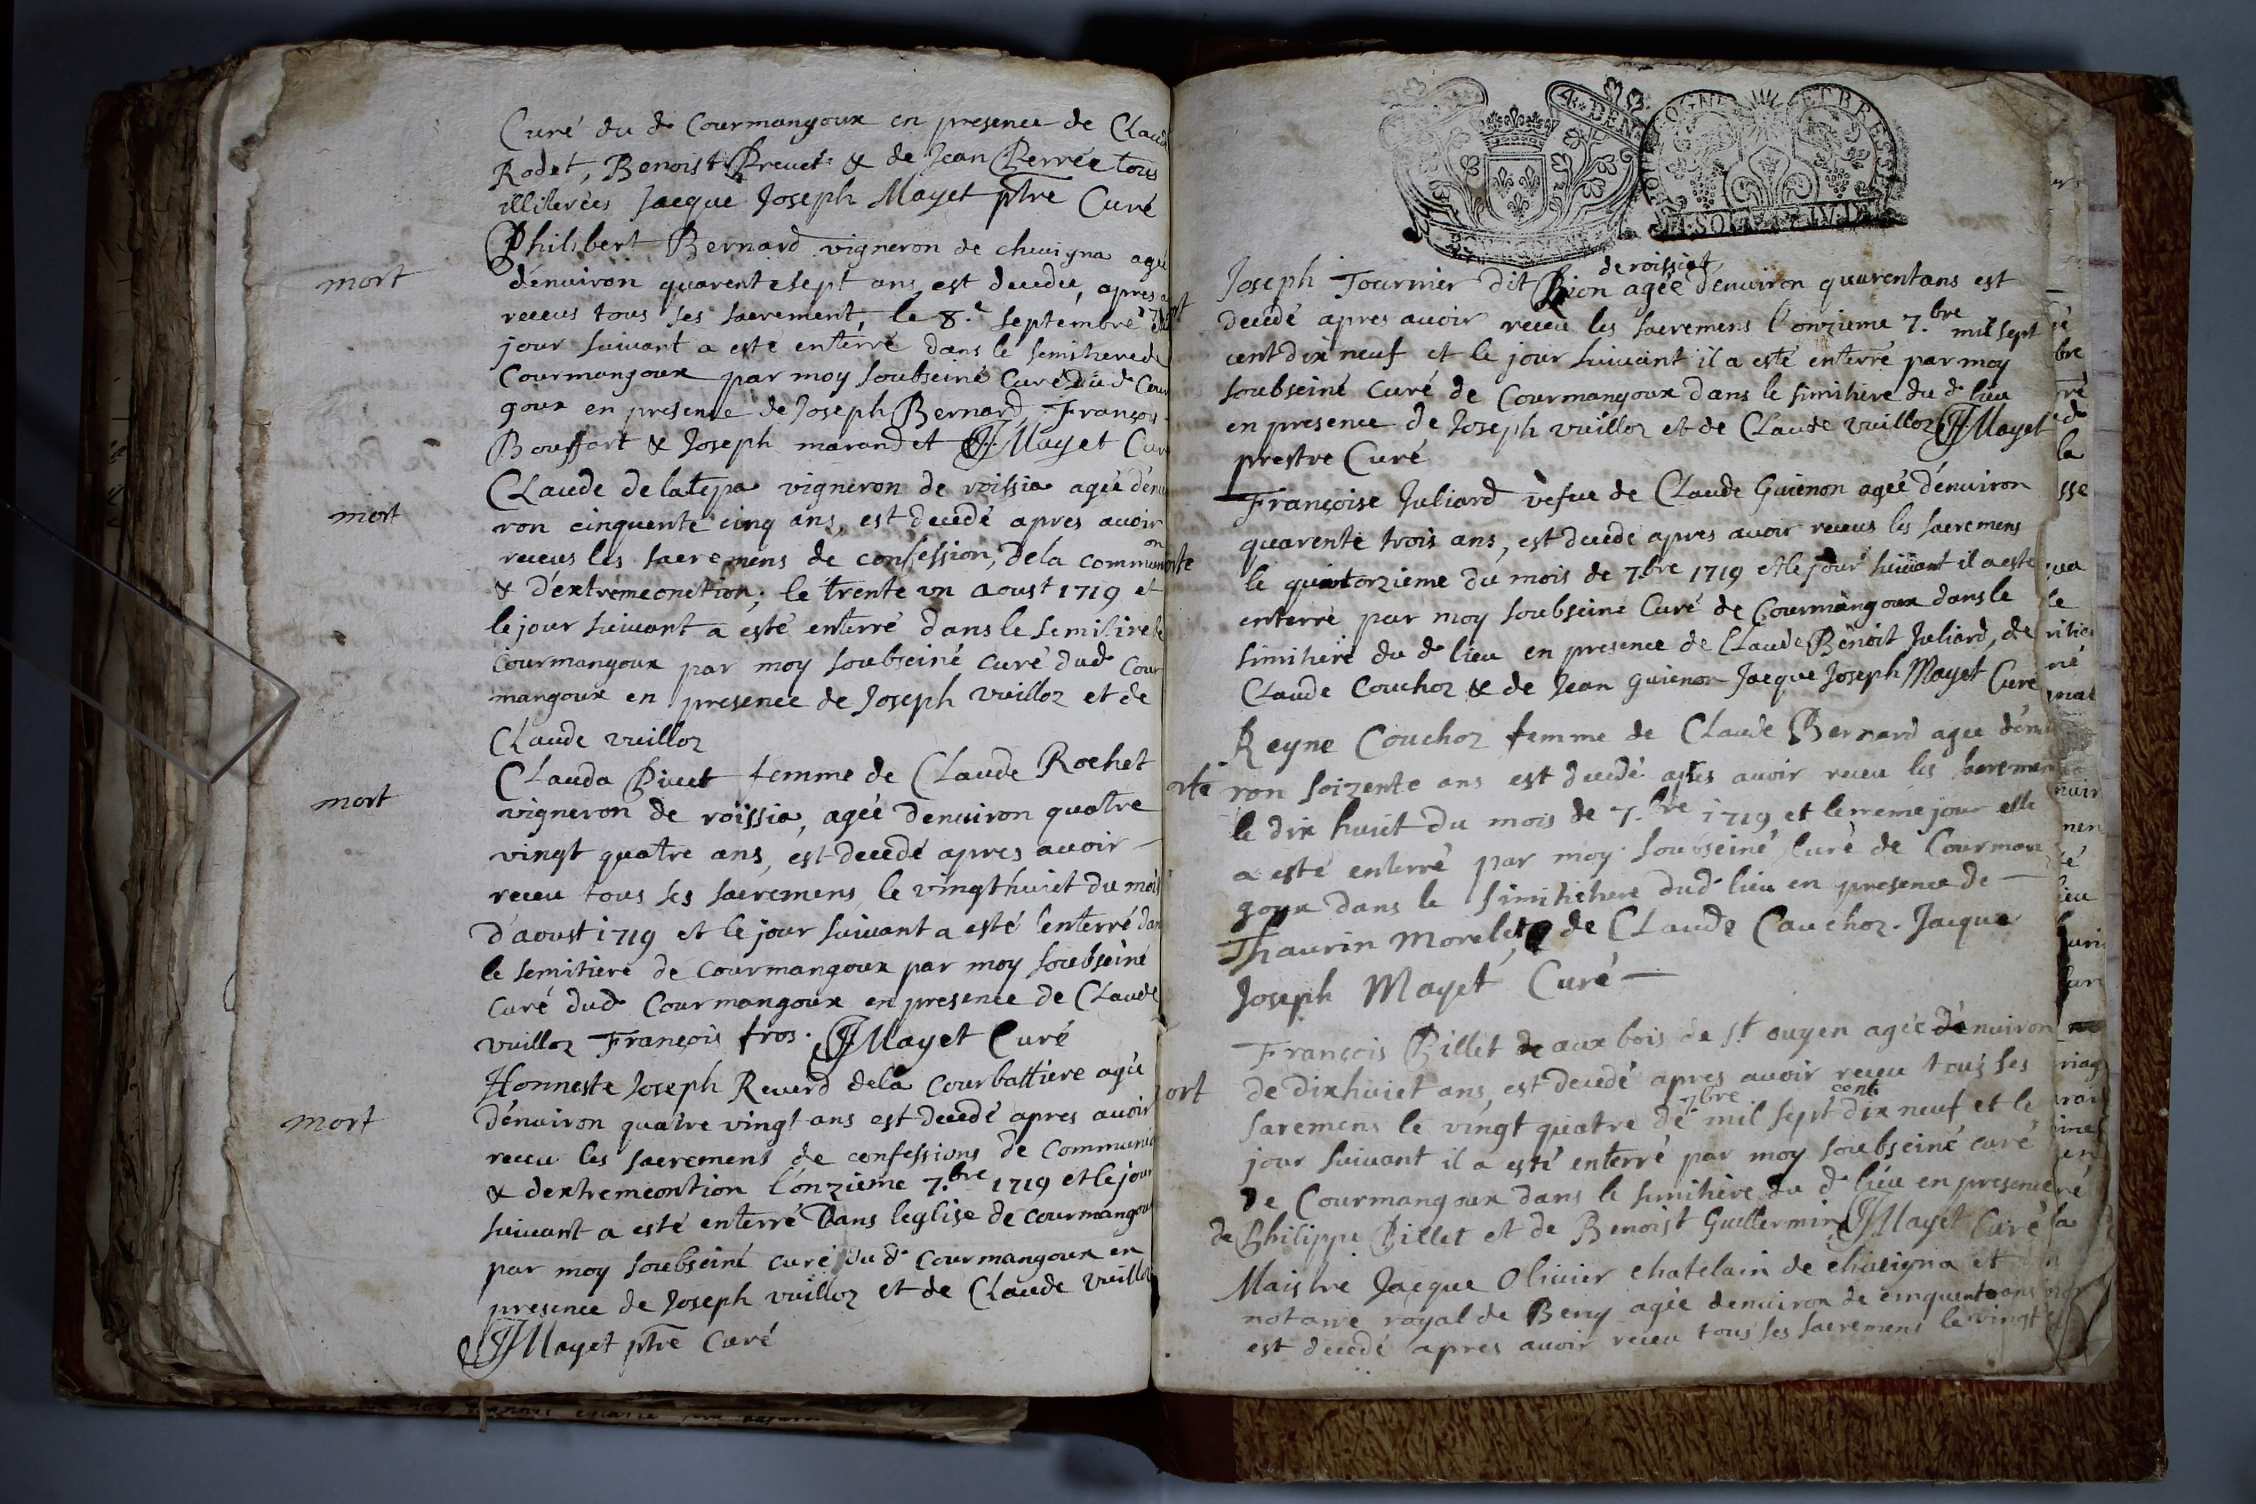 Curé du d. Courmangoux en presence de Claud
Rodet, Benoist Brevet & de Jean Perrée tous
illiterées Jacque Joseph Mayet ptre Curé
Philibert Bernard vigneron de chevigna agée
mort
d'environ quarente sept ans, est decedée, apres
receus tous ses sacrement, le 8.e septembre
jour suivant a este enterré dans le semithere de
Courmangoux par moy soubseiné Curé du d. Cour
goux en presence de Joseph Bernard, François
Bouffart & Joseph marandet JJMayet Cur
Claude delatepa vigneron de roissia agée d'envi
mort
ron cinquente cinq ans, est decedé apres avoir
receus les sacremens de confession, dela commun
on
& d'extremeonction, le trente un aoust 1719 et
le jour suivant a esté enterré dans le semitire de
Courmangoux par moy soubseiné curé dud Cour
mangoux en presence de Joseph vuilloz et de
Claude vuilloz
Clauda Pivet femme de Claude Rochet
mort
vigneron de roissia, agée d'environ quatre
vingt quatre ans, est decedé apres avoir
receu tous ses sacremens, le vingt huict du mois
d'aoust 1719 et le jour suivant a esté enterré dan
le semitiere de courmangoux par moy soubseiné
Curé dud. Courmangoux en presence de Claude
vuilloz François fros. JJMayet Curé
Honneste Joseph Reverd dela Courbattiere agée
mort
d'environ quatre vingt ans est decedé apres avoir
receu les sacremens de confessions de Communi
& dextremeontion l'onzieme 7.bre 1719 et le jour
suivant a esté enterré Dans leglise de courmangoux
par moy soubseiné curé du d. Courmangoux en
presence de Joseph vuilloz et de Claude vuilloz
JJMayet ptre Curé
A. DEN
BOURGOGNE ET BRESSE
de roissiat
Joseph Tournier dit Bion agée d'environ quarentans est
decedé apres avoir receu les sacremens l'onzieme 7.bre mil sept
cent dix neuf et le jour suivant il a esté enterré par moy
soubseiné curé de Courmangoux dans le simitiere du d. lieu
en presence de Joseph vuilloz et de Claude vuilloz JJMayet
prestre Curé
Françoise Juliard vefve de Claude Guienon agée d'environ
quarente trois ans, est decedé apres avoir receus les sacremens
le quatorzieme du mois de 7.bre 1719 et le jour suivant il a este
enterré par moy soubseiné Curé de Courmangoux dans le
simitiere du d. lieu en presence de Claude Benoit Juliard, de
Claude Couchoz & de Jean guienon Jacque Joseph Mayet Curé
Reyne Couchoz femme de Claude Bernard agée d'envi
orte
ron soizente ans est decedé apres avoir receu les sacremen
le dix huict du mois de 7.bre 1719 et le meme jour elle
a esté enterré par moy soubseiné Curé de Courman
goux dans le simithere dud. lieu en presence de
Thaurin Morelet, & de Claude Cauchoz. Jacque
Joseph Mayet Curé
François Billet de aux bois de st. ouyen agée d'environ
ort
de dixhuict ans, est decedé apres avoir receu tous ses
7bre cent
saremens le vingt quatre de mil sept dix neuf et le
jour suivant il a esté enterré par moy soubseiné curé
de Courmangoux dans le simitiere du d. lieu en presence
de Philippe Billet et de Benoist Guillermin JJMayet Curé
Maistre Jacque Olivier chatelain de chevigna et
notaire royal de Beny agée d'environ de cinquente ans
est decedé apres avoir receu tous ses sacremens le vingt